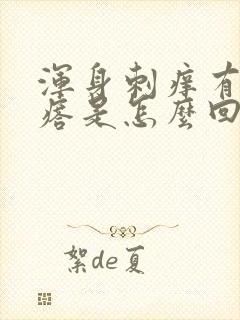 渾身刺癢有
瘩是怎麼回
絮de夏